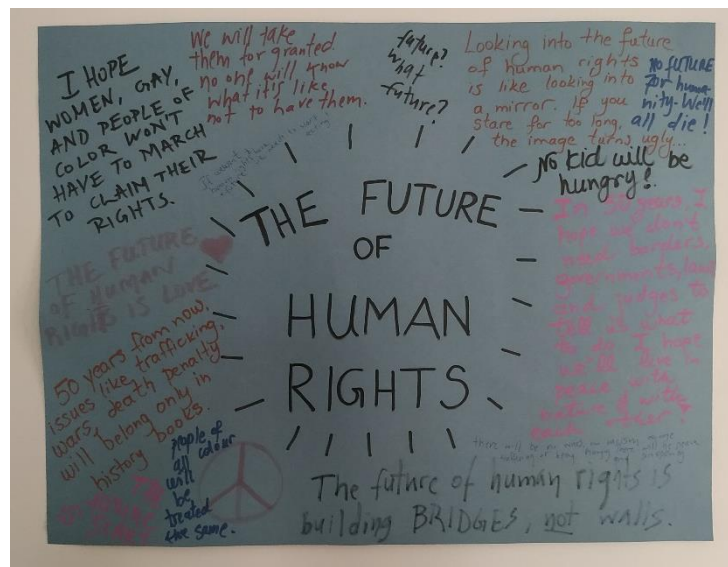 I HOPE
WOMEN, GAY,
AND PEOPLE OF
COLOR WON'T
HAVE TO MARCH
TO CLAIM THEIR
RIGHTS.
We will take
them for granted
no one will know
what it's like
not to have them.
future?
what
future?
Looking into the future
of human rights
is like looking into
a mirror. If you
stare for too long,
the image turns ugly...
NO FUTURE
for huma
nity. We'll
all die!
No kid will be
hungry!
THE FUTURE
OF
HUMAN
RIGHTS
THE FUTURE
OF HUMAN
RIGHTS IS LOVE
In 50 years, I
hope we don't
need borders,
governments, laws
and judges to
tell us what
to do. I hope
we'll live in
peace with
nature & with
each other!
50 years from now,
issues like trafficking,
wars, death penalty
will belong only in
history books.
people of
all colour
will
be
treated
the same.
there will be no
The future of human rights is
building BRIDGES, not walls.